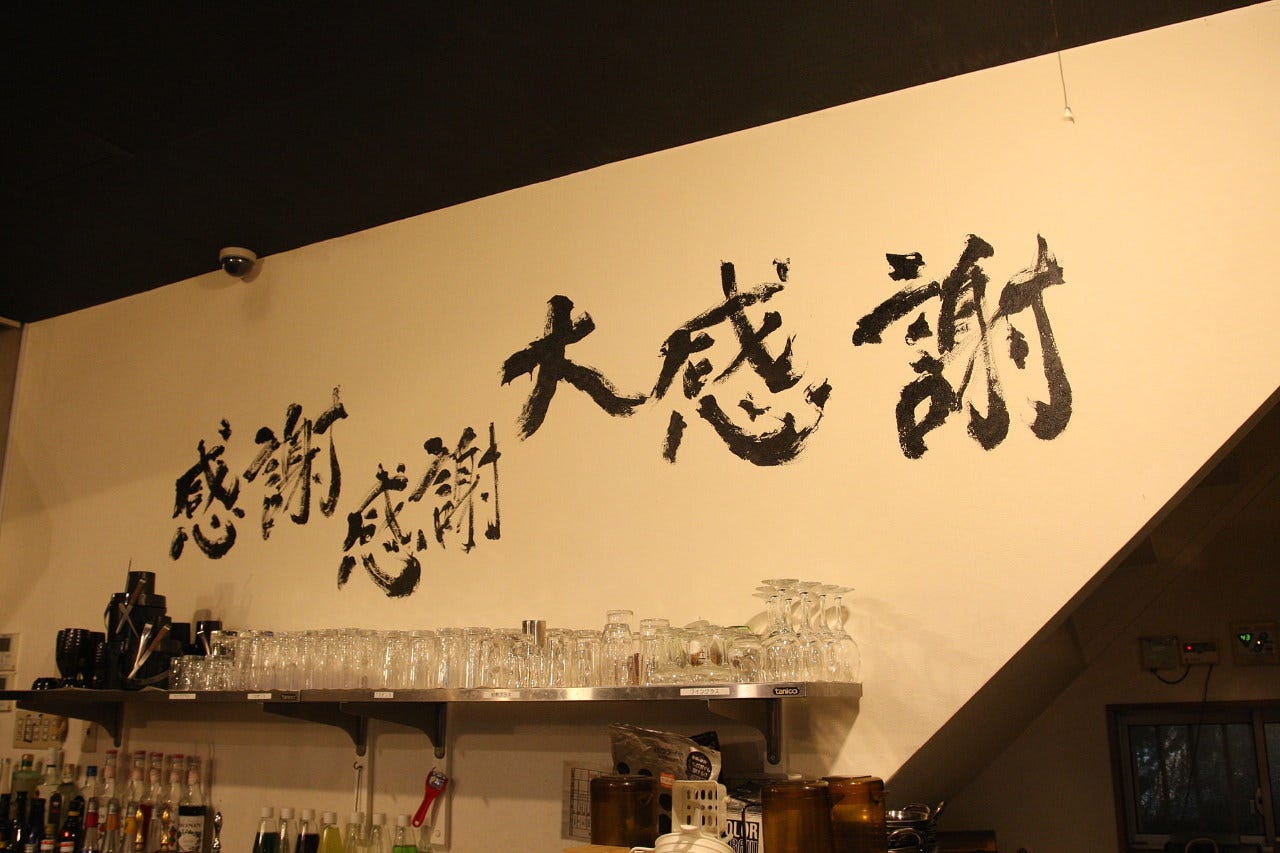 感謝
感謝
大感謝
ワイングラス
tanico
43